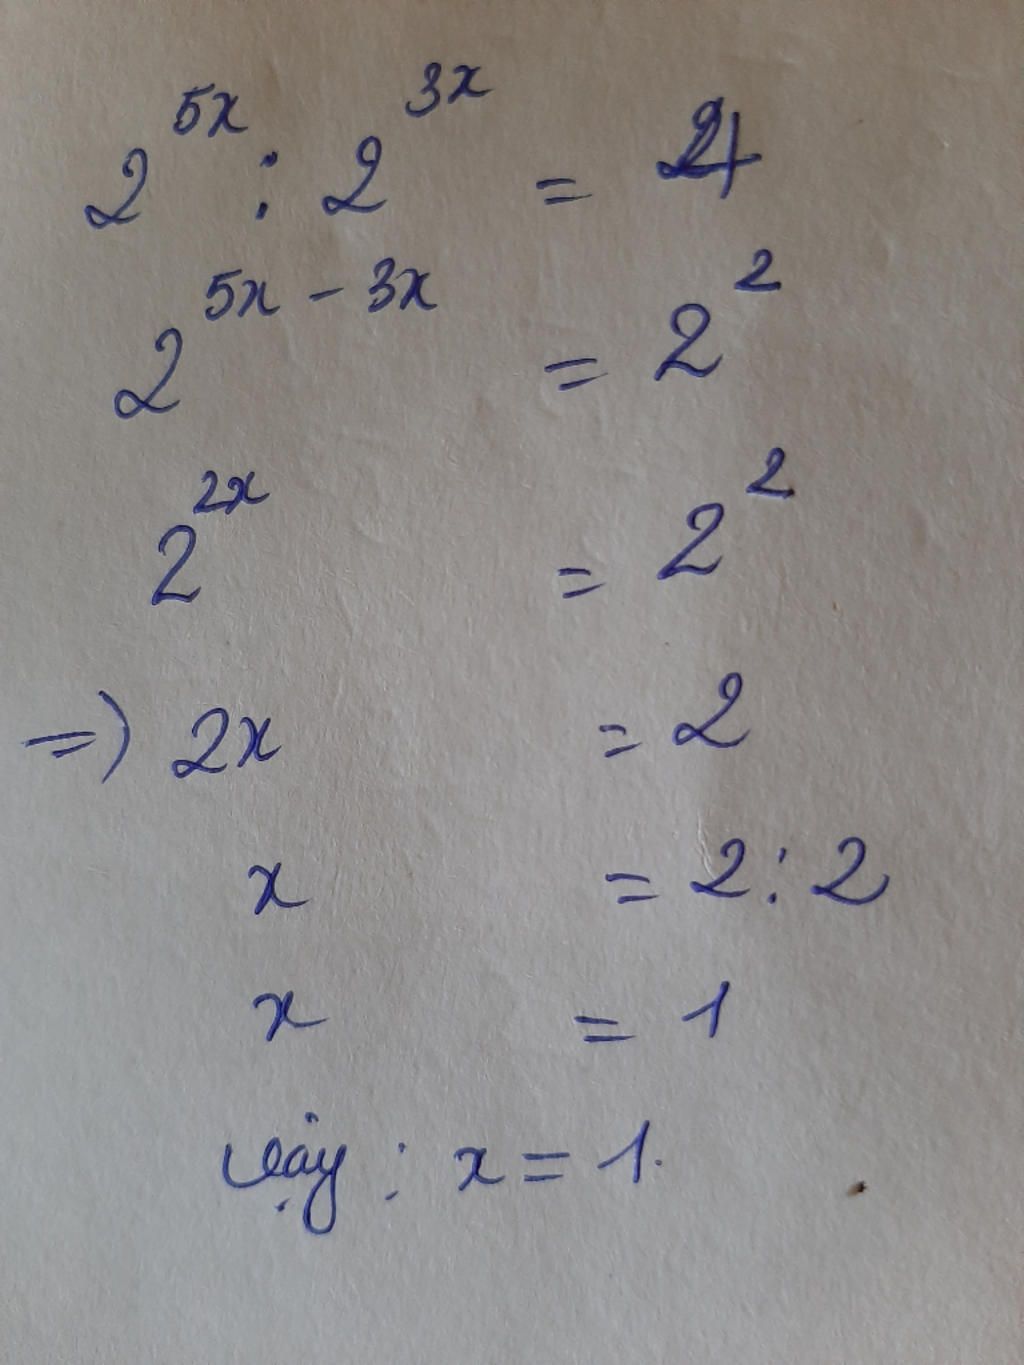 2^{5x} : 2^{3x} = 4
2^{5x - 3x} = 2^2
2^{2x} = 2^2
=> 2x = 2
x = 2 : 2
x = 1
Vậy : x = 1.